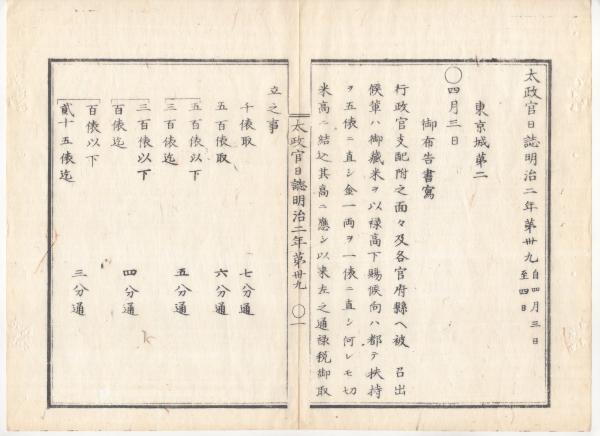 太政官日誌明治二年第卅九 自四月三日至四日
東京城第二
〇四月三日
御布告書寫
行政官支配附之面々及各官府縣ヘ被 召出
候輩ハ御藏米ヲ以祿高下賜候向ハ都テ扶持
ヲ五俵ニ直シ金一両ヲ一俵ニ直シ何レモ切
米高ニ結ヒ其高ニ應シ以来左之通祿税御取
太政官日誌明治二年第卅九 〇一
立之事
千俵取 七分通
五百俵取 六分通
五百俵以下
三百俵迄 五分通
三百俵以下
百俵迄 四分通
百俵以下
貳十五俵迄 三分通